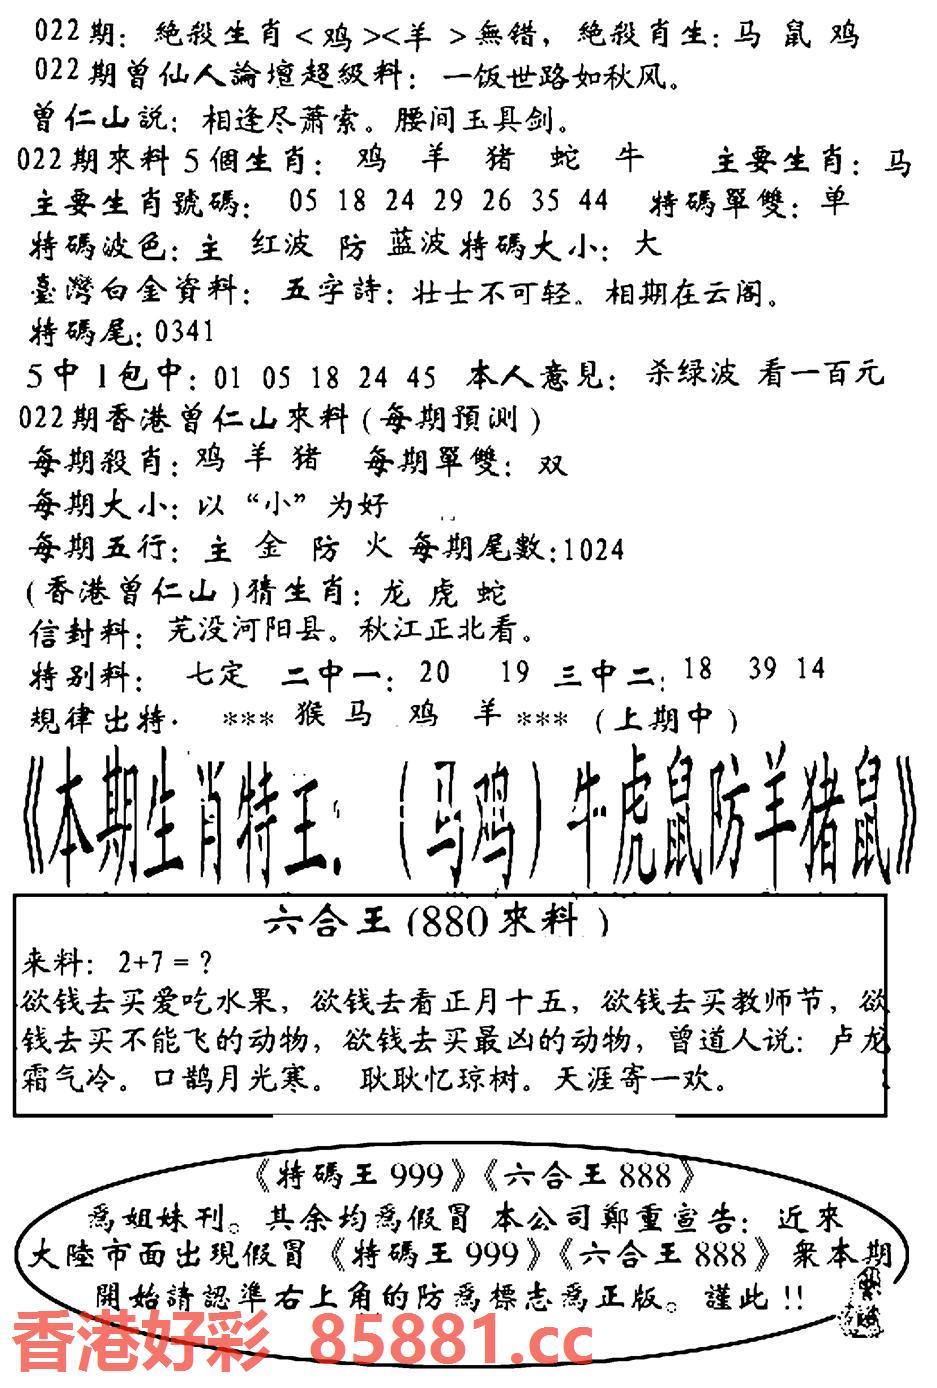 022期: 絶殺生肖<鸡><羊>無错，絶殺肖生:马 鼠 鸡
022期曾仙人論壇超級料: 一饭世路如秋风。
曾仁山説: 相逢尽萧索。腰间玉具剑。
022期來料5個生肖: 鸡 羊 猪 蛇 牛 主要生肖: 马
主要生肖號碼: 05 18 24 29 26 35 44 特碼單雙: 单
特碼波色: 主 红波 防 蓝波 特碼大小: 大
臺灣白金資料: 五字詩: 壮士不可轻。相期在云阁。
特碼尾: 0341
5中1包中: 01 05 18 24 45 本人意見: 杀绿波 看一百元
022期香港曾仁山來料(每期預測)
每期殺肖: 鸡 羊 猪 每期單雙: 双
每期大小: 以“小”为好
每期五行: 主 金 防 火 每期尾數:1024
(香港曾仁山)猜生肖: 龙 虎 蛇
信封料: 芜没河阳县。秋江正北看。
特别料: 七定 二中一: 20 19 三中二: 18 39 14
規律出特· *** 猴 马 鸡 羊 *** (上期中)
《本期生肖特王: (马鸡) 牛虎鼠防羊猪鼠》
六合王(880來料)
来料: 2+7=?
欲钱去买爱吃水果，欲钱去看正月十五，欲钱去买教师节，欲
钱去买不能飞的动物，欲钱去买最凶的动物，曾道人说: 卢龙
霜气冷。口鹊月光寒。 耿耿忆琼树。天涯寄一欢。
《特碼王999》《六合王888》
爲姐妹刊。其余均爲假冒 本公司鄭重宣告: 近來
大陸市面出現假冒《特碼王999》《六合王888》衆本期
開始請認準右上角的防爲標志爲正版。謹此!!
香港好彩 85881.cc